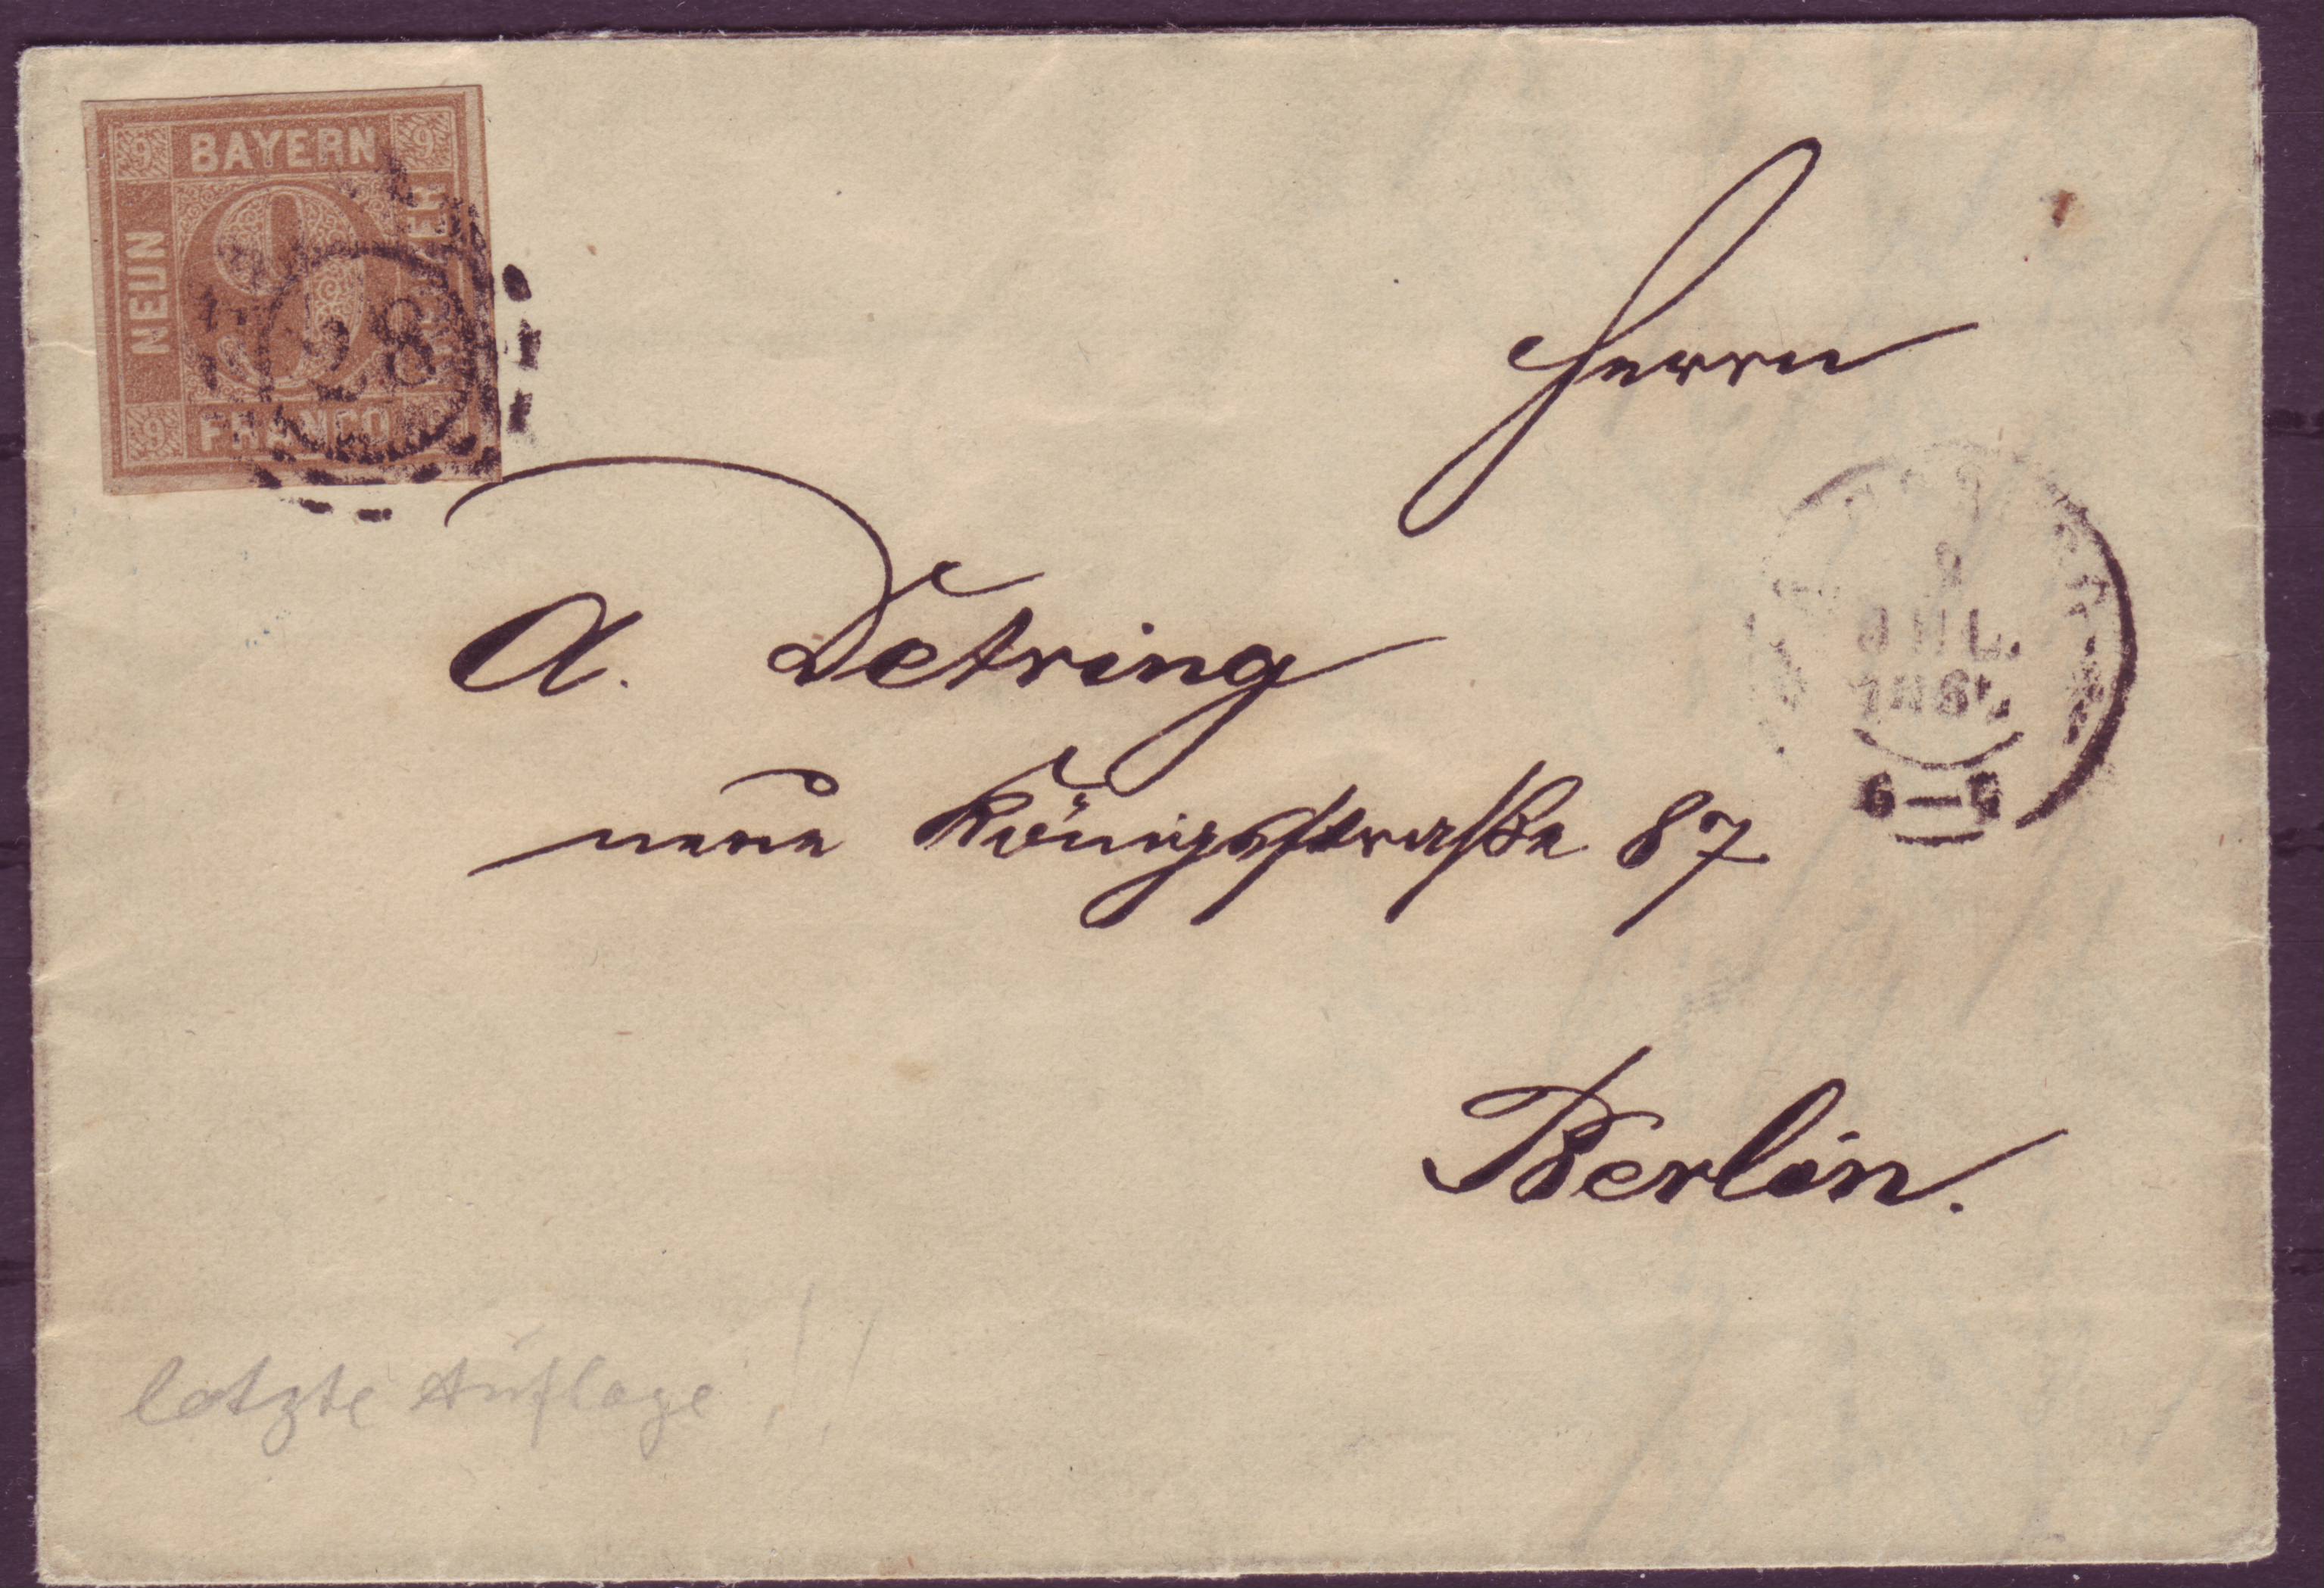 9 BAYERN 9
NEUN
9
FRANCO
9
28
Herrn
A. Detring
neue Königsstraße 87
Berlin.
JUL.
letzte Auflage!!